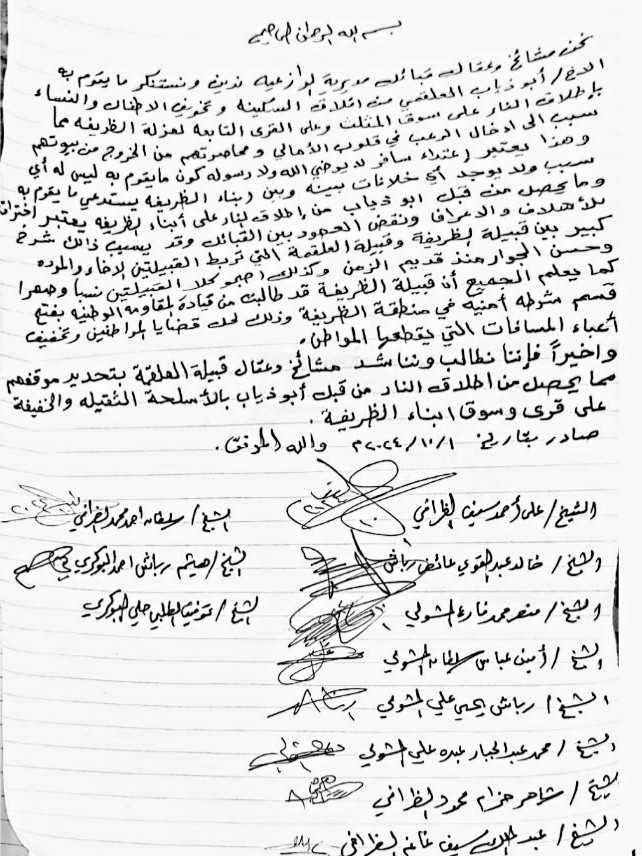 بسم الله الرحمن الرحيم
نحن مشائخ وعقال قبائل مديرية الوازعيه ندين ونستنكر ما يقوم به
الاخ/ أبو ذياب العلقمي من اقلاق السكينه وتخويف الاطفال والنساء
بإطلاق النار على سوق المثلث وعلى القرى التابعة لعزلة الظريفه مما
سبب الى ادخال الرعب في قلوب الأهالي ومحاصرتهم من الخروج من بيوتهم
وهذا يعتبر إعتداء سافر لا يرضي الله ولا رسوله كون ما يقوم به ليس له أي
سبب ولا يوجد أي خلافات بينه وبين ابناء الظريفه يستدعي ما يقوم به
وما يحصل من قبل ابو ذياب من إطلاق النار على أبناء الظريفه يعتبر اختراق
للأسلاف والاعراف ونقض العهود بين القبائل وقد يسبب ذالك شرخ
كبير بين قبيلة الظريفة وقبيلة العلقمة التي تربط القبيلتين الإخاء والموده
وحسن الجوار منذ قديم الزمن وكذلك اصبحو كلا القبيلتين نسبا وصهرا
كما يعلم الجميع أن قبيلة الظريفة قد طالبت من قيادة المقاومة الوطنيه بفتح
قسم شرطه أمنيه في منطقة الظريفة وذلك لحل قضايا المواطنين وتخفيف
أعباء المسافات التي يقطعها المواطن.
واخيراً فإننا نطالب ونناشد مشائخ وعقال قبيلة العلقمة بتحديد موقفهم
مما يحصل من اطلاق النار من قبل أبو ذياب بالأسلحة الثقيله والخفيفة
على قرى وسوق ابناء الظريفة.
صادر بتاريخ ٢٠٢٤/١٠/١م والله الموفق.
الشيخ/ علي أحمد سيف الظرافي
الشيخ/ سلطان احمد محمد الظرافي
الشيخ/ خالد عبدالقوي عائض رباش
الشيخ/ هيثم رباش احمد البوكري
الشيخ/ منصر محمد قارع المشولي
الشيخ/ توفيق الطلبي علي البوكري
الشيخ/ أمين عباس سلطان المشولي
الشيخ/ رباش يحيى علي المشولي
الشيخ/ محمد عبدالجبار عبده علي المشولي
الشيخ/ شاهر حزام محمود الظرافي
الشيخ/ عبدالملك سيف غانم الظرافي